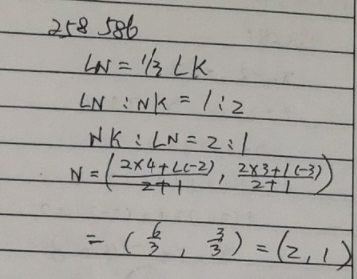 258 586
LN = 1/3 LK
LN : NK = 1 : 2
NK : LN = 2 : 1
N = (2×4+1(-2)/2+1, 2×3+1(-3)/2+1)
= (6/3, 3/3) = (2, 1)